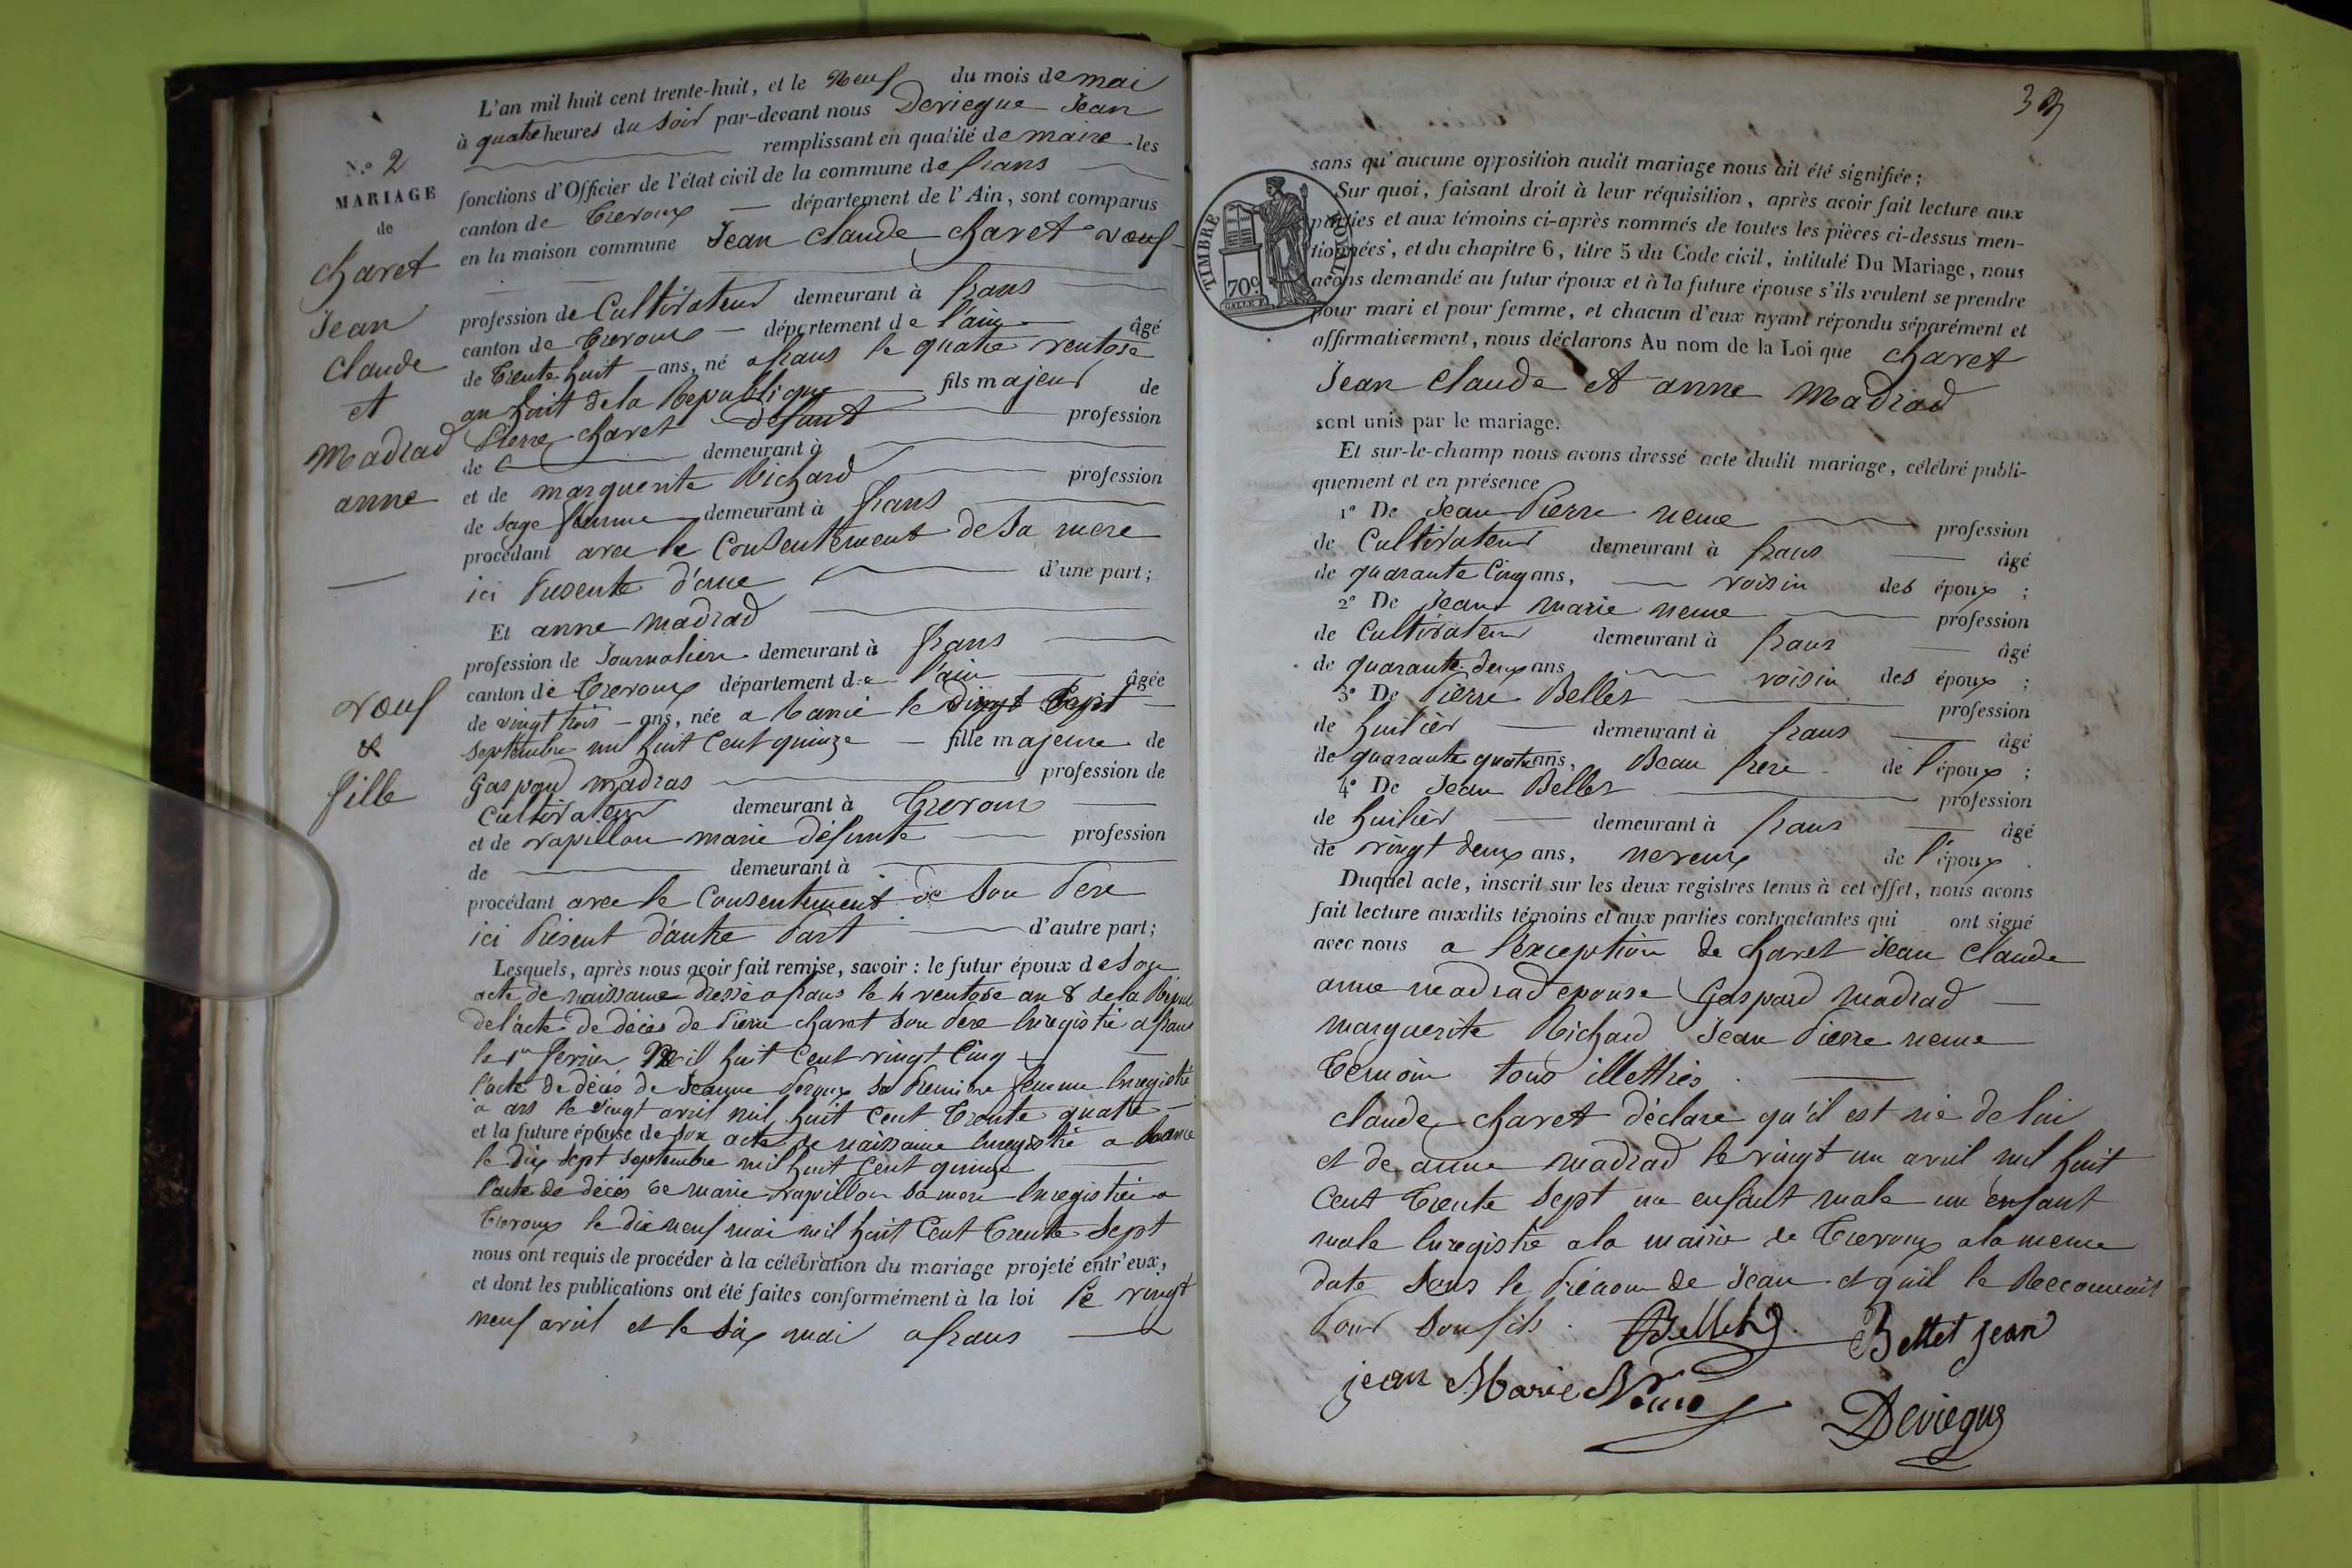 L'an mil huit cent trente-huit, et le Neuf du mois de mai
à quatre heures du soir par-devant nous Deviegue Jean
remplissant en qualité de maire les
N.o 2
MARIAGE
de
charet
Jean
claude
et
Madrad
anne
veuf
&
fille
fonctions d'Officier de l'état civil de la commune de frans
canton de Trevoux département de l'Ain, sont comparus
en la maison commune Jean claude charet veuf
profession de Cultivateur demeurant à frans
canton de Trevoux département de l'ain âgé
de trente huit ans, né a frans le quatre ventose
an huit de la Republique fils majeur de
Pierre charet défunt profession
de demeurant à
et de marguerite Richard profession
de sage femme demeurant à frans
procédant avec le Consentement de sa mere
ici presente d'une d'une part;
Et anne madrad
profession de Journaliere demeurant à frans
canton de Trevoux département de l'ain âgée
de vingt trois ans, née a le
septembre mil huit cent quinze fille majeure de
Gaspard madras profession de
Cultivateur demeurant à Trevoux
et de vapillon marie défunte profession
de demeurant à
procédant avec le Consentement de son Pere
ici Présent d'autre Part d'autre part;
Lesquels, après nous avoir fait remise, savoir: le futur époux de son
acte de naissance dressé a frans le 4 ventose an 8 de la
de l'acte de décès de Pierre charet son Pere Enregistré a frans
le 1er fevrier Mil huit Cent vingt Cinq
l'acte de décès de Jeanne sa Premiere femme Enregistré
a ars le vingt avril mil huit Cent trente quatre
et la future épouse de son acte de naissance Enregistré a
le dix sept septembre mil huit Cent quinze
l'acte de décès de marie vapillon sa mere Enregistré a
Trevoux le dix neuf mai mil huit Cent trente sept
nous ont requis de procéder à la célébration du mariage projeté entr'eux,
et dont les publications ont été faites conformément à la loi le vingt
neuf avril et le six mai a frans
TIMBRE ROYAL
709
sans qu'aucune opposition audit mariage nous ait été signifiée;
Sur quoi, faisant droit à leur réquisition, après avoir fait lecture aux
parties et aux témoins ci-après nommés de toutes les pièces ci-dessus men-
tionnées, et du chapitre 6, titre 5 du Code civil, intitulé Du Mariage, nous
avons demandé au futur époux et à la future épouse s'ils veulent se prendre
pour mari et pour femme, et chacun d'eux ayant répondu séparément et
affirmativement, nous déclarons Au nom de la Loi que charet
Jean claude et anne Madrad
sont unis par le mariage.
Et sur-le-champ nous avons dressé acte dudit mariage, célébré publi-
quement et en présence
1o De Jean Pierre neme profession
de Cultivateur demeurant à frans âgé
de quarante Cinq ans, voisin des époux ;
2o De Jean Marie neme profession
de Cultivateur demeurant à frans âgé
de quarante deux ans, voisin des époux ;
3o De Pierre Bellet profession
de huilier demeurant à frans âgé
de quarante quatre ans, Beau frere de l'époux ;
4o De Jean Bellet profession
de huilier demeurant à frans âgé
de vingt deux ans, neveux de l'époux .
Duquel acte, inscrit sur les deux registres tenus à cet effet, nous avons
fait lecture auxdits témoins et aux parties contractantes qui ont signé
avec nous a l'exception de charet Jean Claude
anne madrad epouse Gaspard madrad
marguerite Richard Jean Pierre neme
temoin tous illettrés
claude charet déclare qu'il est né de lui
et de anne madrad le vingt un avril mil huit
Cent trente sept un enfant male un enfant
male Enregistré a la mairie de Trevoux a la meme
date sous le Prénom de Jean et qu'il le Reconnait
Pour son fils. Bellet Bellet jean
jean Marie Neme
Deviegue